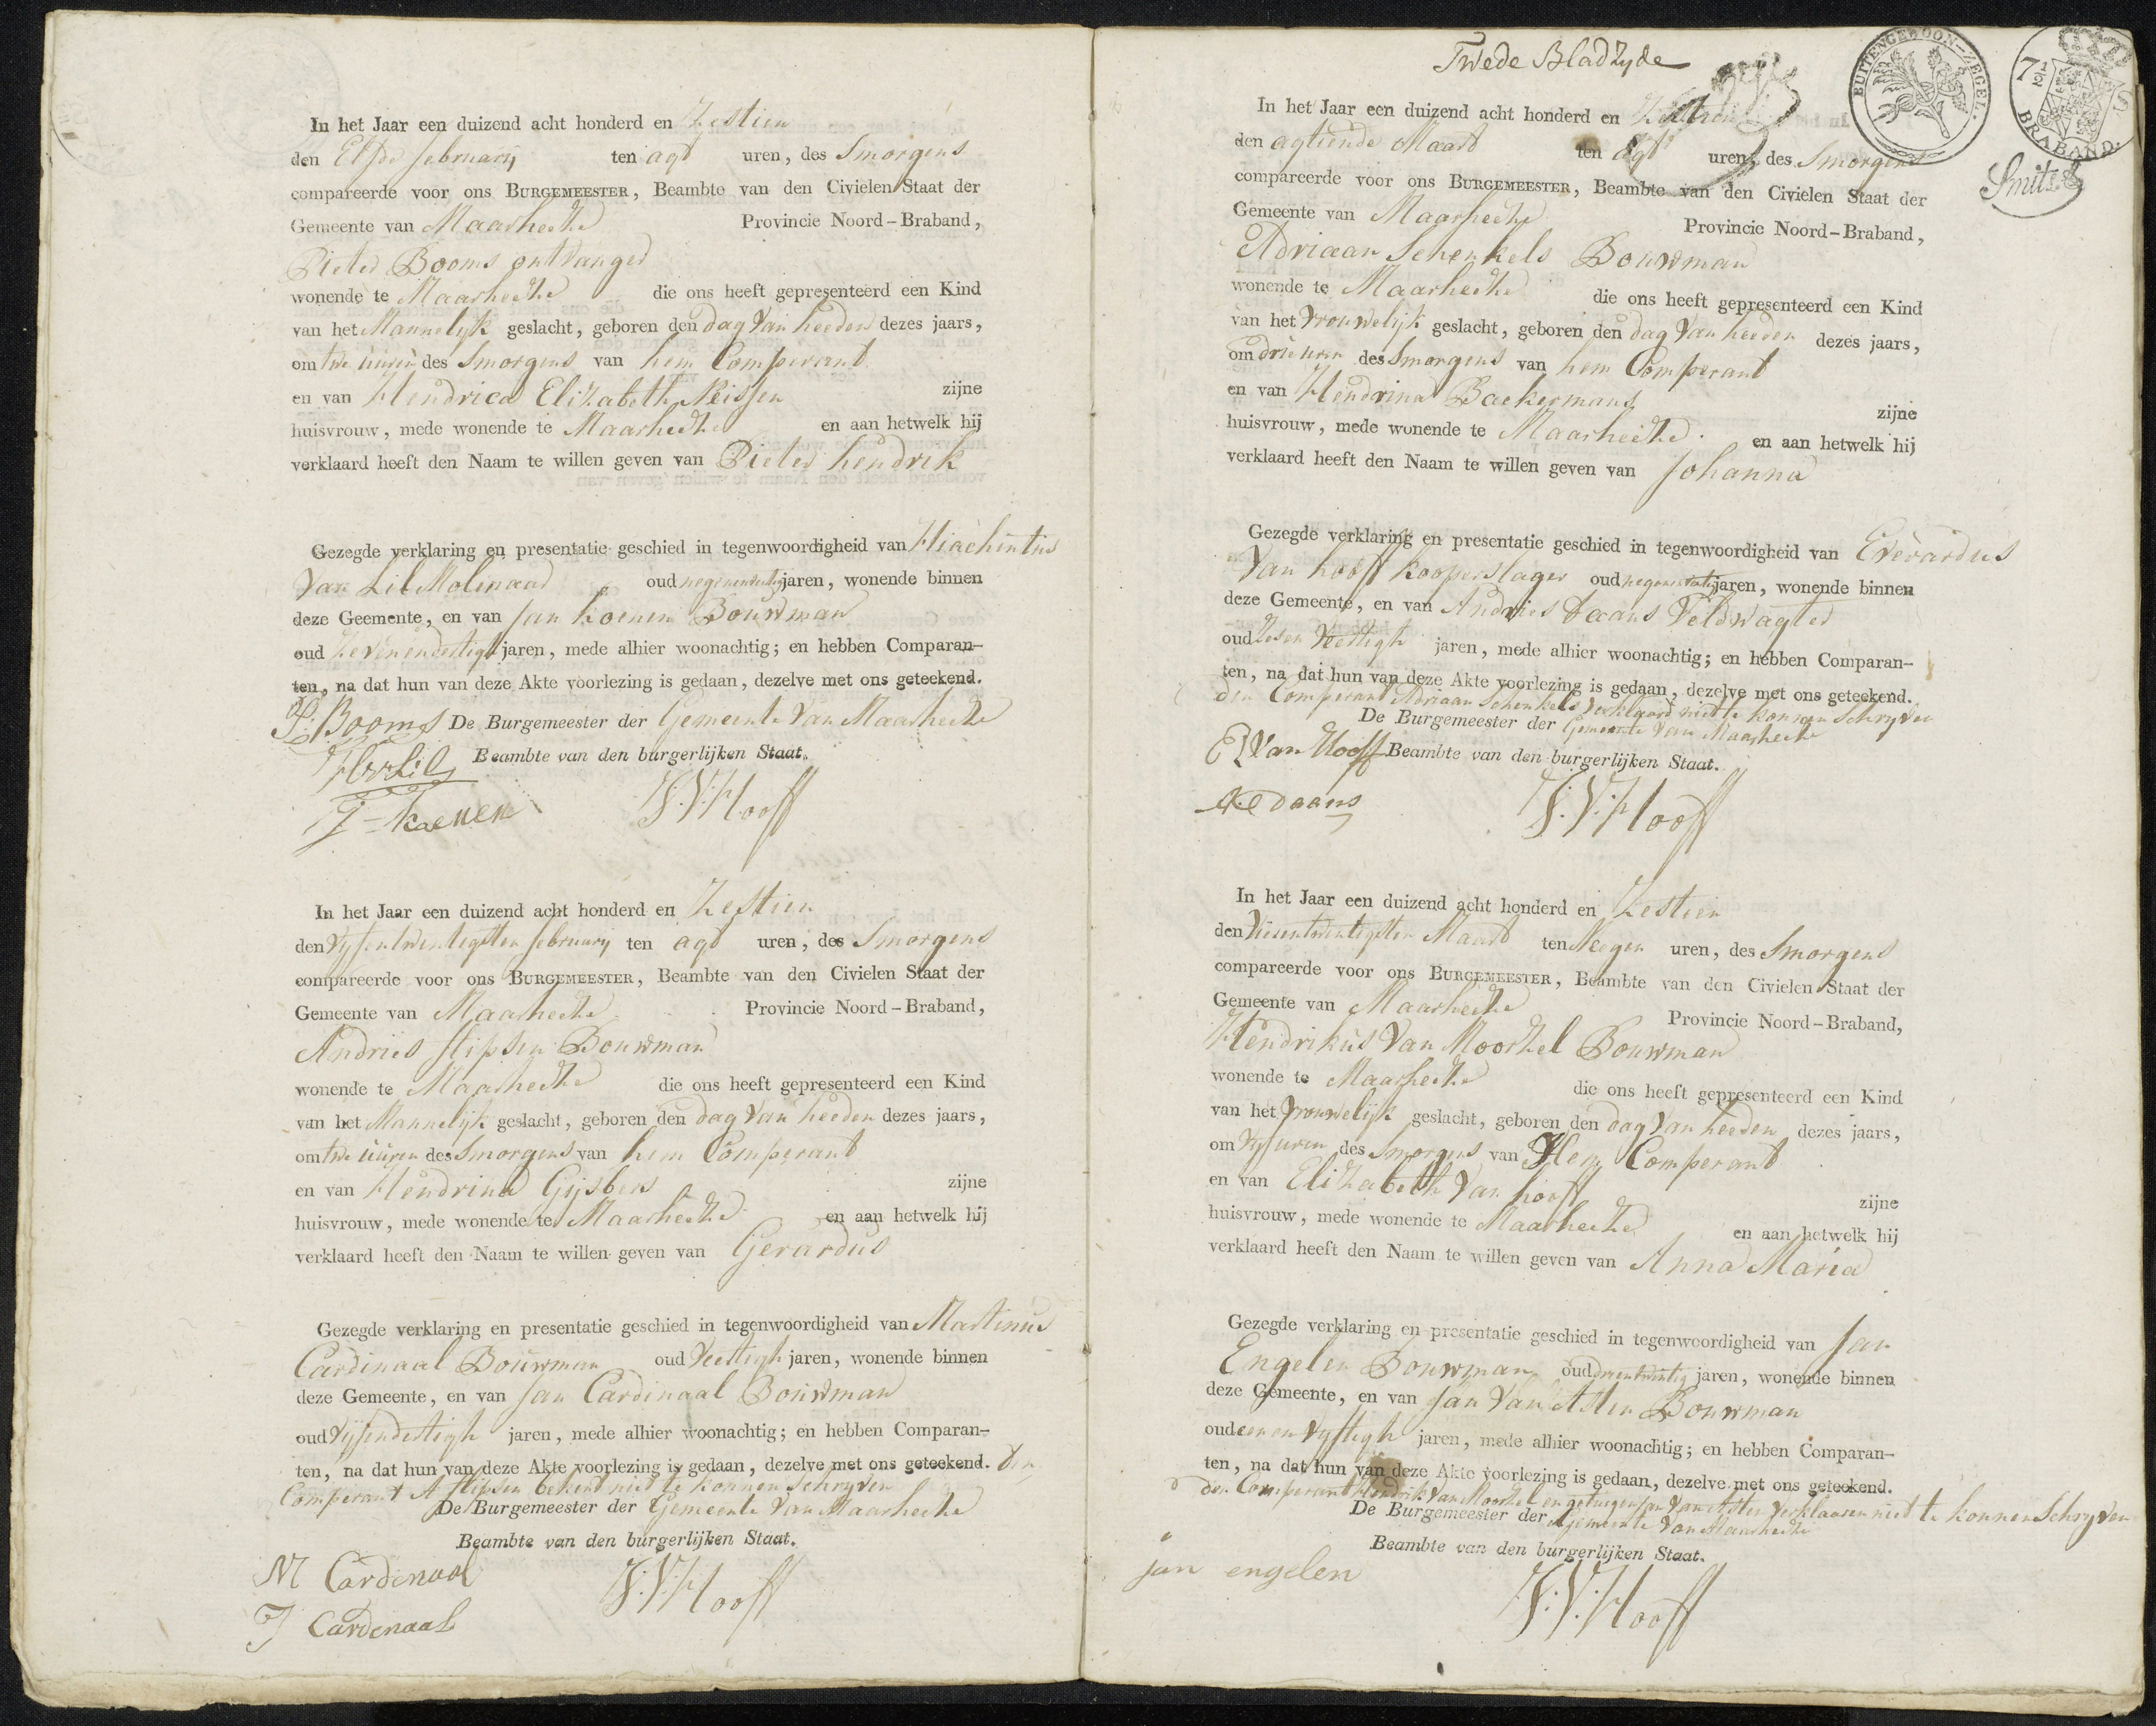 In het Jaar een duizend acht honderd en Zestien
den Elfde february ten agt uren, des Smorgens
compareerde voor ons BURGEMEESTER, Beambte van den Civielen Staat der
Gemeente van Maarheeze Provincie Noord-Braband,
Pieter Booms ontvanger
wonende te Maarheeze die ons heeft gepresenteerd een Kind
van het Mannelyk geslacht, geboren den dag Van heeden dezes jaars,
om twe uuren des Smorgens van hem Comperant
en van Hendrica Elizabeth Neissen zijne
huisvrouw, mede wonende te Maarheeze en aan hetwelk hij
verklaard heeft den Naam te willen geven van Pieter hendrik
Gezegde verklaring en presentatie geschied in tegenwoordigheid van Hiachintus
Van Lil Molenaar oud negenendertig jaren, wonende binnen
deze Geemente, en van Jan Koenen Bouwman
oud Zevenendertigh jaren, mede alhier woonachtig; en hebben Comparan-
ten, na dat hun van deze Akte voorlezing is gedaan, dezelve met ons geteekend.
P: Booms De Burgemeester der Gemeente Van Maarheeze
HvLil Beambte van den burgerlijken Staat.
J-koenen V:Hooff
In het Jaar een duizend acht honderd en Zestien
den Vyfentwentigsten february ten agt uren, des Smorgens
compareerde voor ons BURGEMEESTER, Beambte van den Civielen Staat der
Gemeente van Maarheeze Provincie Noord-Braband,
Andries Slipsen Bouwman
wonende te Maarheeze die ons heeft gepresenteerd een Kind
van het Mannelyk geslacht, geboren den dag Van heeden dezes jaars,
om twe uuren des Smorgens van hem Comperant
en van Hendrina Gijsbers zijne
huisvrouw, mede wonende te Maarheeze en aan hetwelk hij
verklaard heeft den Naam te willen geven van Gerardus
Gezegde verklaring en presentatie geschied in tegenwoordigheid van Martinus
Cardinaal Bouwman oud Veertigh jaren, wonende binnen
deze Gemeente, en van Jan Cardinaal Bouwman
oud Vyfendertigh jaren, mede alhier woonachtig; en hebben Comparan-
ten, na dat hun van deze Akte voorlezing is gedaan, dezelve met ons geteekend. Den
Comperant A Slipsen bekend niet te konnen Schryven
De Burgemeester der Gemeente Van Maarheeze
Beambte van den burgerlijken Staat.
M Cardenaal V:Hooff
J Cardenaal
Twede Bladzyde
BUITENGEWOON-ZEGEL.
7½ S
BRABAND.
Smits
In het Jaar een duizend acht honderd en Zestien
den agtiende Maart ten agt uren, des Smorgens
compareerde voor ons BURGEMEESTER, Beambte van den Civielen Staat der
Gemeente van Maarheeze Provincie Noord-Braband,
Adriaan Schenkels Bouwman
wonende te Maarheeze die ons heeft gepresenteerd een Kind
van het Vrouwelijk geslacht, geboren den dag Van heeden dezes jaars,
om drie uren des Smorgens van hem Comperant
en van Hendrina Backermans zijne
huisvrouw, mede wonende te Maarheeze. en aan hetwelk hij
verklaard heeft den Naam te willen geven van Johanna
Gezegde verklaring en presentatie geschied in tegenwoordigheid van Everardus
Van hooff kooperslager oud jaren, wonende binnen
deze Gemeente, en van Andries Daans Veldwagter
oud Zesen Veertigh jaren, mede alhier woonachtig; en hebben Comparan-
ten, na dat hun van deze Akte voorlezing is gedaan, dezelve met ons geteekend.
den Comperant Adriaan Schenkels Verklaard niet te konnen Schryven
De Burgemeester der Gemeente Van Maarheeze
E Van Hooff Beambte van den burgerlijken Staat.
A: Daans V:Hooff
In het Jaar een duizend acht honderd en Zestien
den Vierentwintigsten Maart ten Neegen uren, des Smorgens
compareerde voor ons BURGEMEESTER, Beambte van den Civielen Staat der
Gemeente van Maarheeze Provincie Noord-Braband,
Hendrikus Van Moorsel Bouwman
wonende te Maarheeze die ons heeft gepresenteerd een Kind
van het Vrouwelijk geslacht, geboren den dag Van heeden dezes jaars,
om Vyf uren des Smorgens van Hem Comperant
en van Elizabeth Van hooff zijne
huisvrouw, mede wonende te Maarheeze en aan hetwelk hij
verklaard heeft den Naam te willen geven van Anna Maria
Gezegde verklaring en presentatie geschied in tegenwoordigheid van Jan
Engelen Bouwman oud drientwintig jaren, wonende binnen
deze Gemeente, en van Jan Van Asten Bouwman
oud eenen Vyftigh jaren, mede alhier woonachtig; en hebben Comparan-
ten, na dat hun van deze Akte voorlezing is gedaan, dezelve met ons geteekend.
den Comperant Hendrik Van Moorsel en getuigen Jan Van Asten Verklaaren niet te konnen Schryven
De Burgemeester der Gemeente Van Maarheeze
Beambte van den burgerlijken Staat.
jan engelen V:Hooff